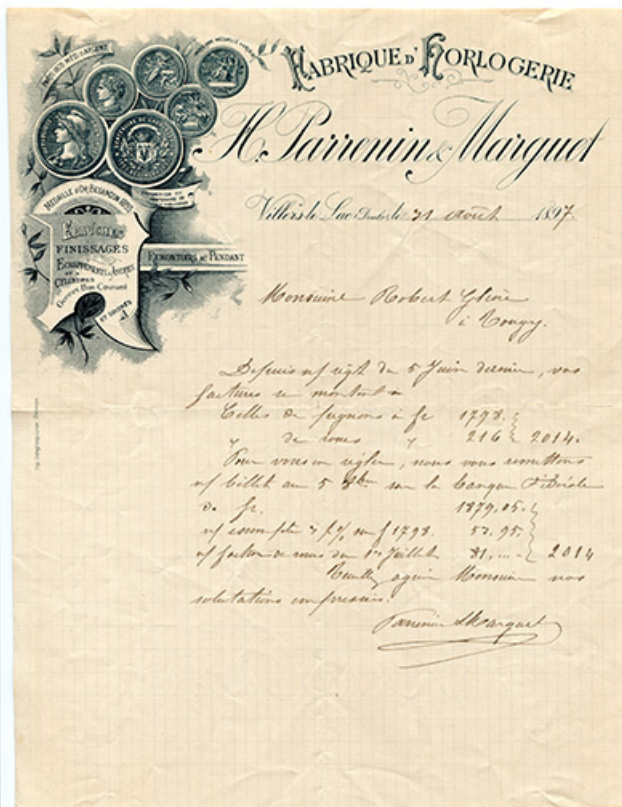 FABRIQUE D'HORLOGERIE
H. Parrenin & Marguet
Villers-le-Lac (Doubs), le 31 août 1897.
MÉDAILLE D'OR, BESANÇON
ÉBAUCHES
FINISSAGES
ÉCHAPPEMENTS À ANCRES
ET À
CYLINDRES
Genres Bon Courant
REMONTOIRS AU PENDANT
Monsieur Robert
à
Depuis n/ rgt du 5 Juin dernier, vos
factures se montent à
Celles de pignons à fr 1798.
" de roues " 216 2014.
Pour vous en régler, nous vous remettons
n/ billet au 5 sur la banque Fédérale
de fr. 1879,05.
n/ escompte 3 % sur f 1798. 53.95.
n/ facture de roues du 1er Juillet 81,... 2014
Veuillez agréer Monsieur nos
salutations empressées.
Parrenin & Marguet